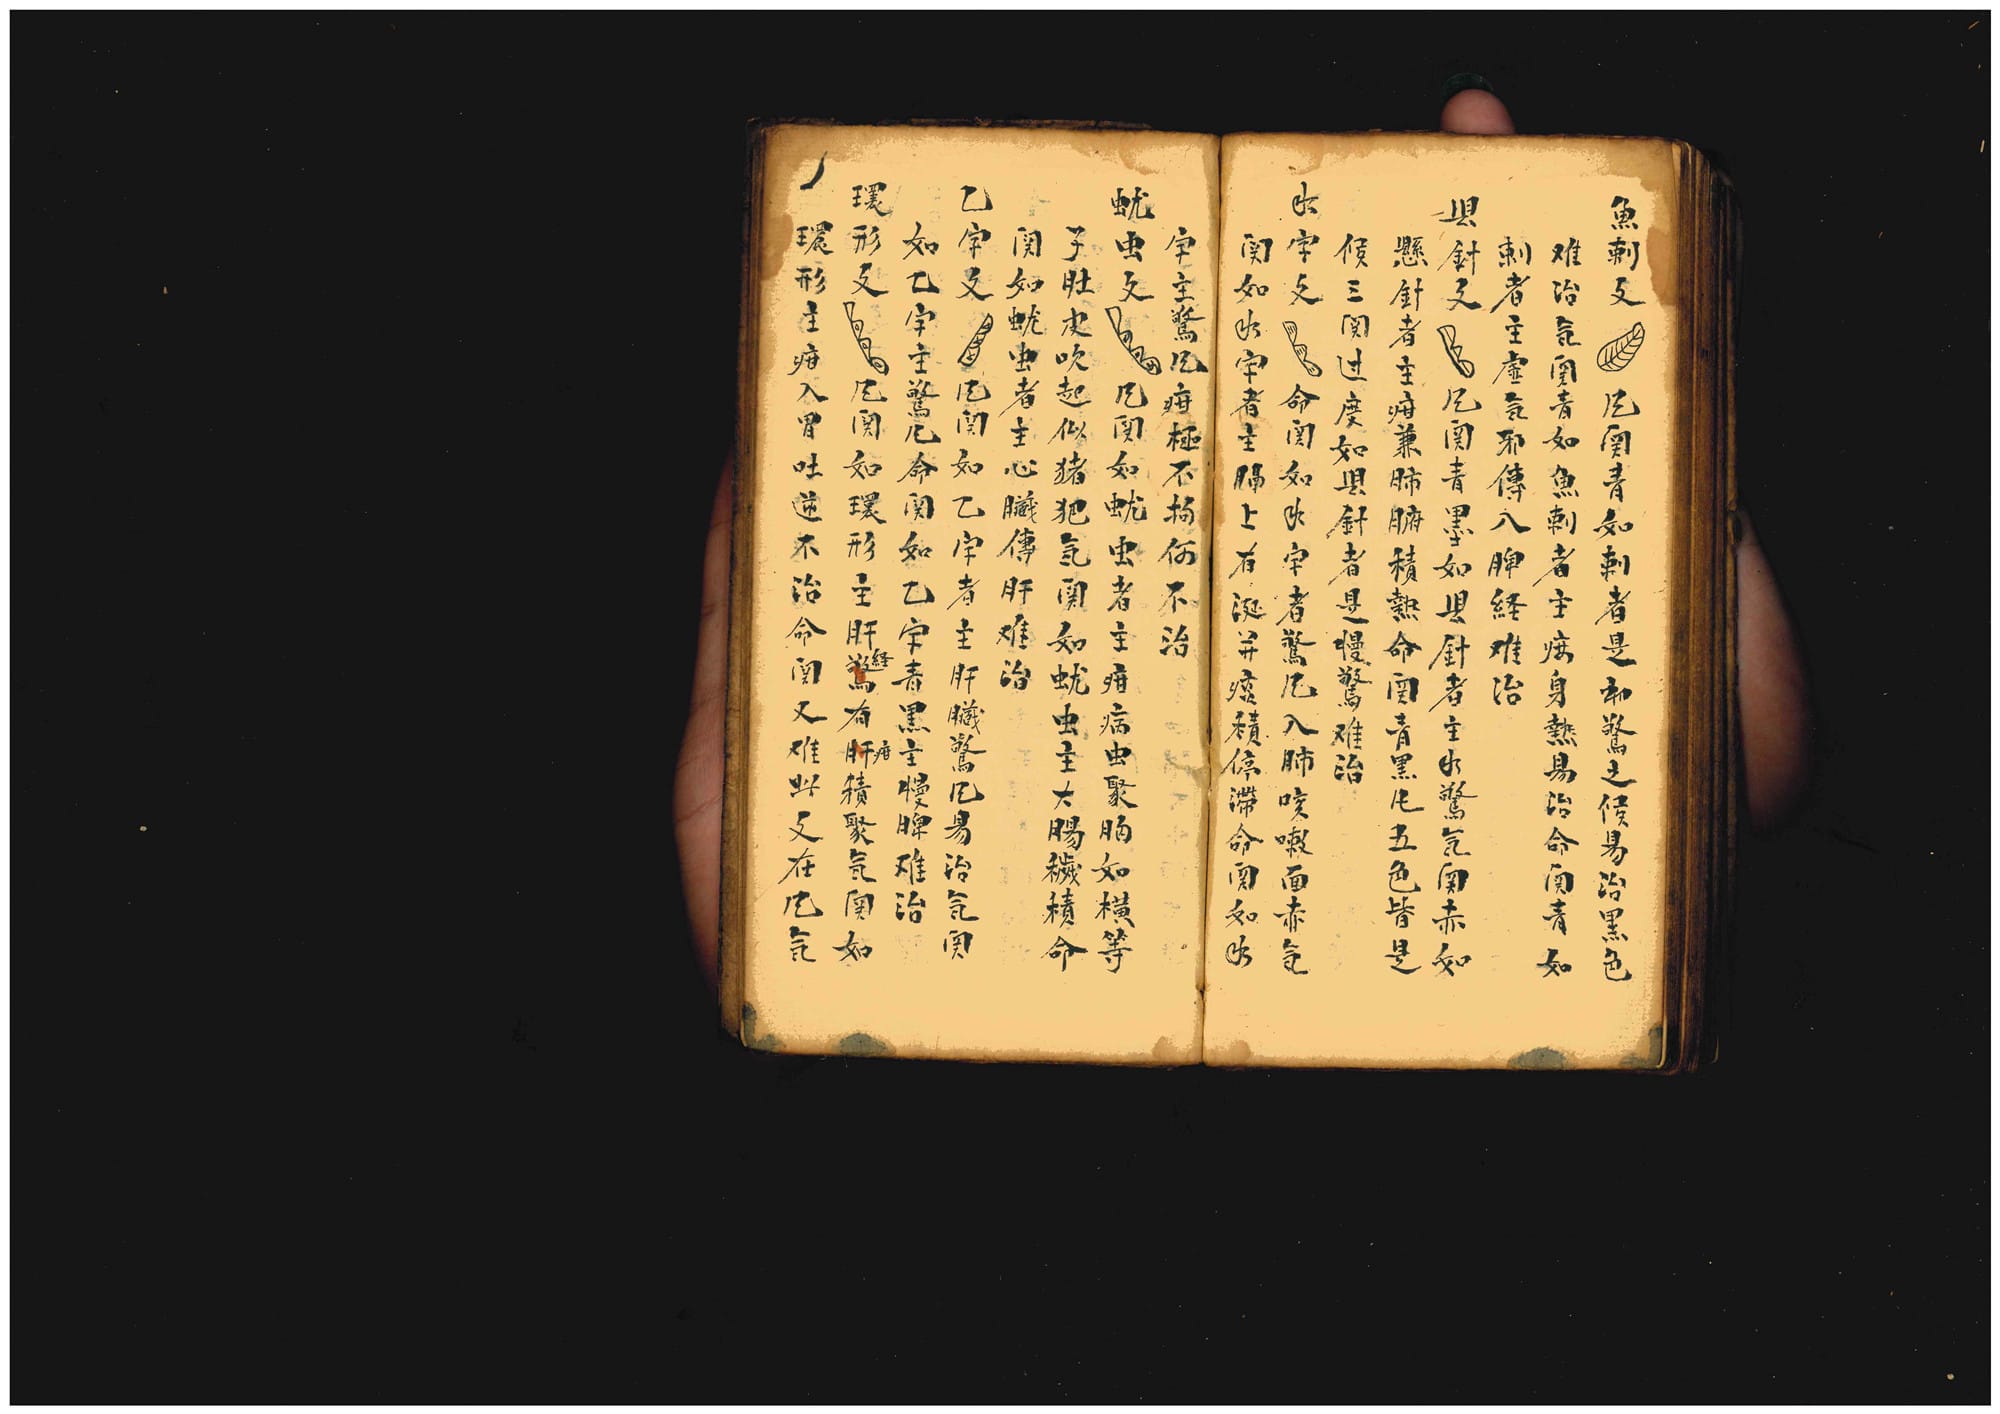 魚刺文 風関青如刺者是初驚之候易治黒色
难治氣関青如魚刺者主疳身熱易治命関青如
刺者主虚氣邪傳入脾経难治
縣針文 風関青墨如縣針者主水驚氣関赤如
懸針者主疳兼肺腑積熱命関青黒風五色皆是
候三関过度如縣針者是慢驚难治
水字文 命関如水字者驚風入肺咳嗽面赤氣
関如水字者主膈上有涎并痰積停滞命関如水
字主驚風疳極不拘何不治
蚘虫文 風関如蚘虫者主疳病虫聚腸如横等
子肚皮吹起似猪犯氣関如蚘虫主大腸穢積命
関如蚘虫者主心臓傳肝难治
乙字文 風関如乙字者主肝臓驚風易治氣関
如乙字主驚風命関如乙字青黒主慢脾难治
環形文 風関如環形主肝経驚有肝疳積聚氣関如
環形主疳入胃吐逆不治命関又难此文在風氣